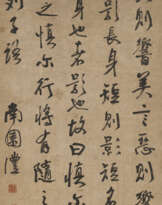 則響美言惡則
影長身短則影短名
身也者影也故曰慎尔
之慎尔行將有隨之
列子語
南園灃